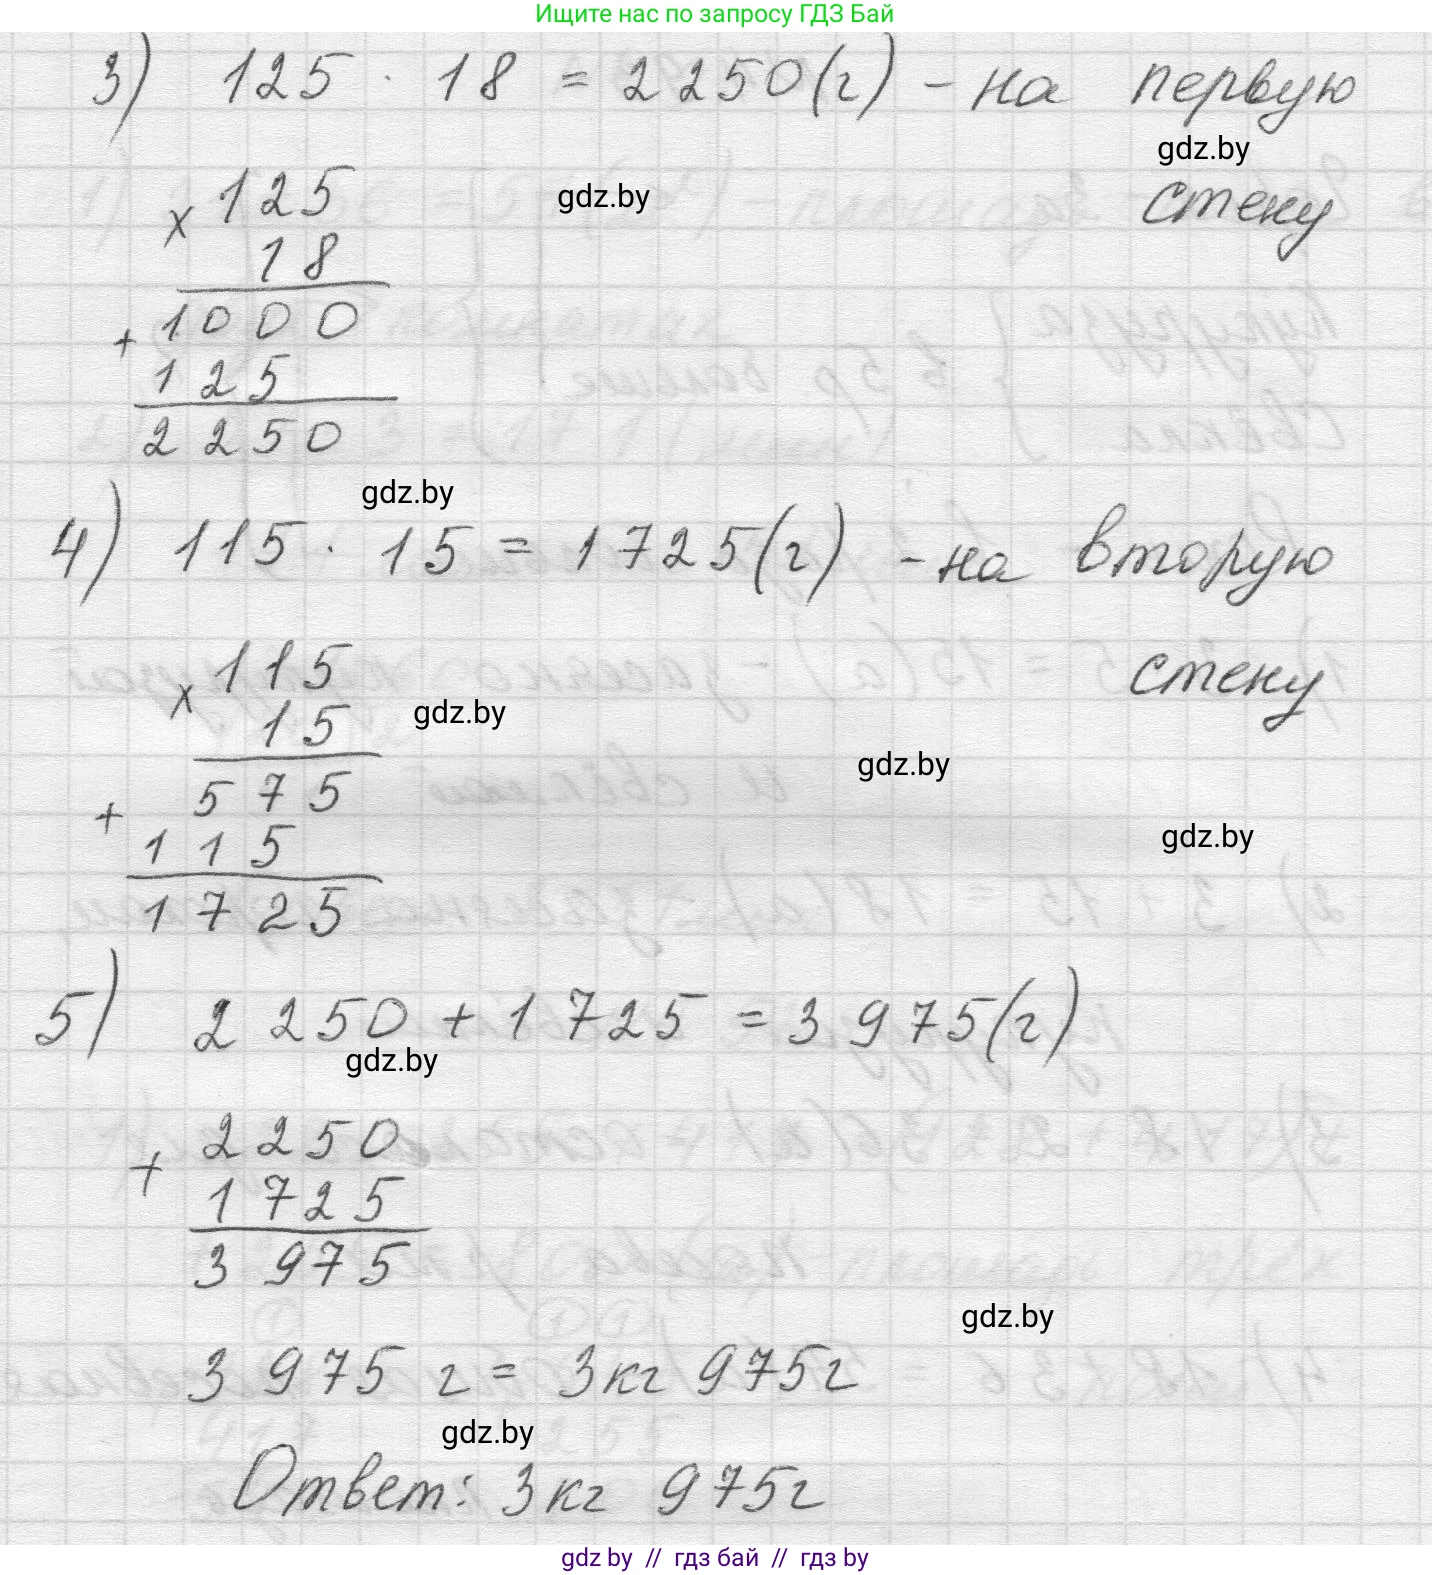 Ищите нас по запросу ГДЗ Бай
3) 125 · 18 = 2250(г) - на первую
gdz.by
стену
gdz.by
× 125
18
+ 1000
125
2250
gdz.by
4) 115 · 15 = 1725(г) - на вторую
стену
× 115
15
gdz.by
gdz.by
+ 575
115
gdz.by
1725
5) 2250 + 1725 = 3975(г)
gdz.by
+ 2250
1725
3975
gdz.by
3975 г = 3кг 975г
gdz.by
Ответ: 3кг 975г
gdz by // гдз бай // гдз by